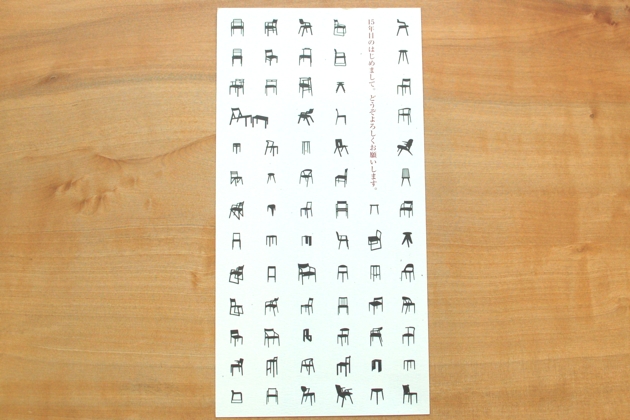 15年目のはじめまして、どうぞよろしくお願いします。